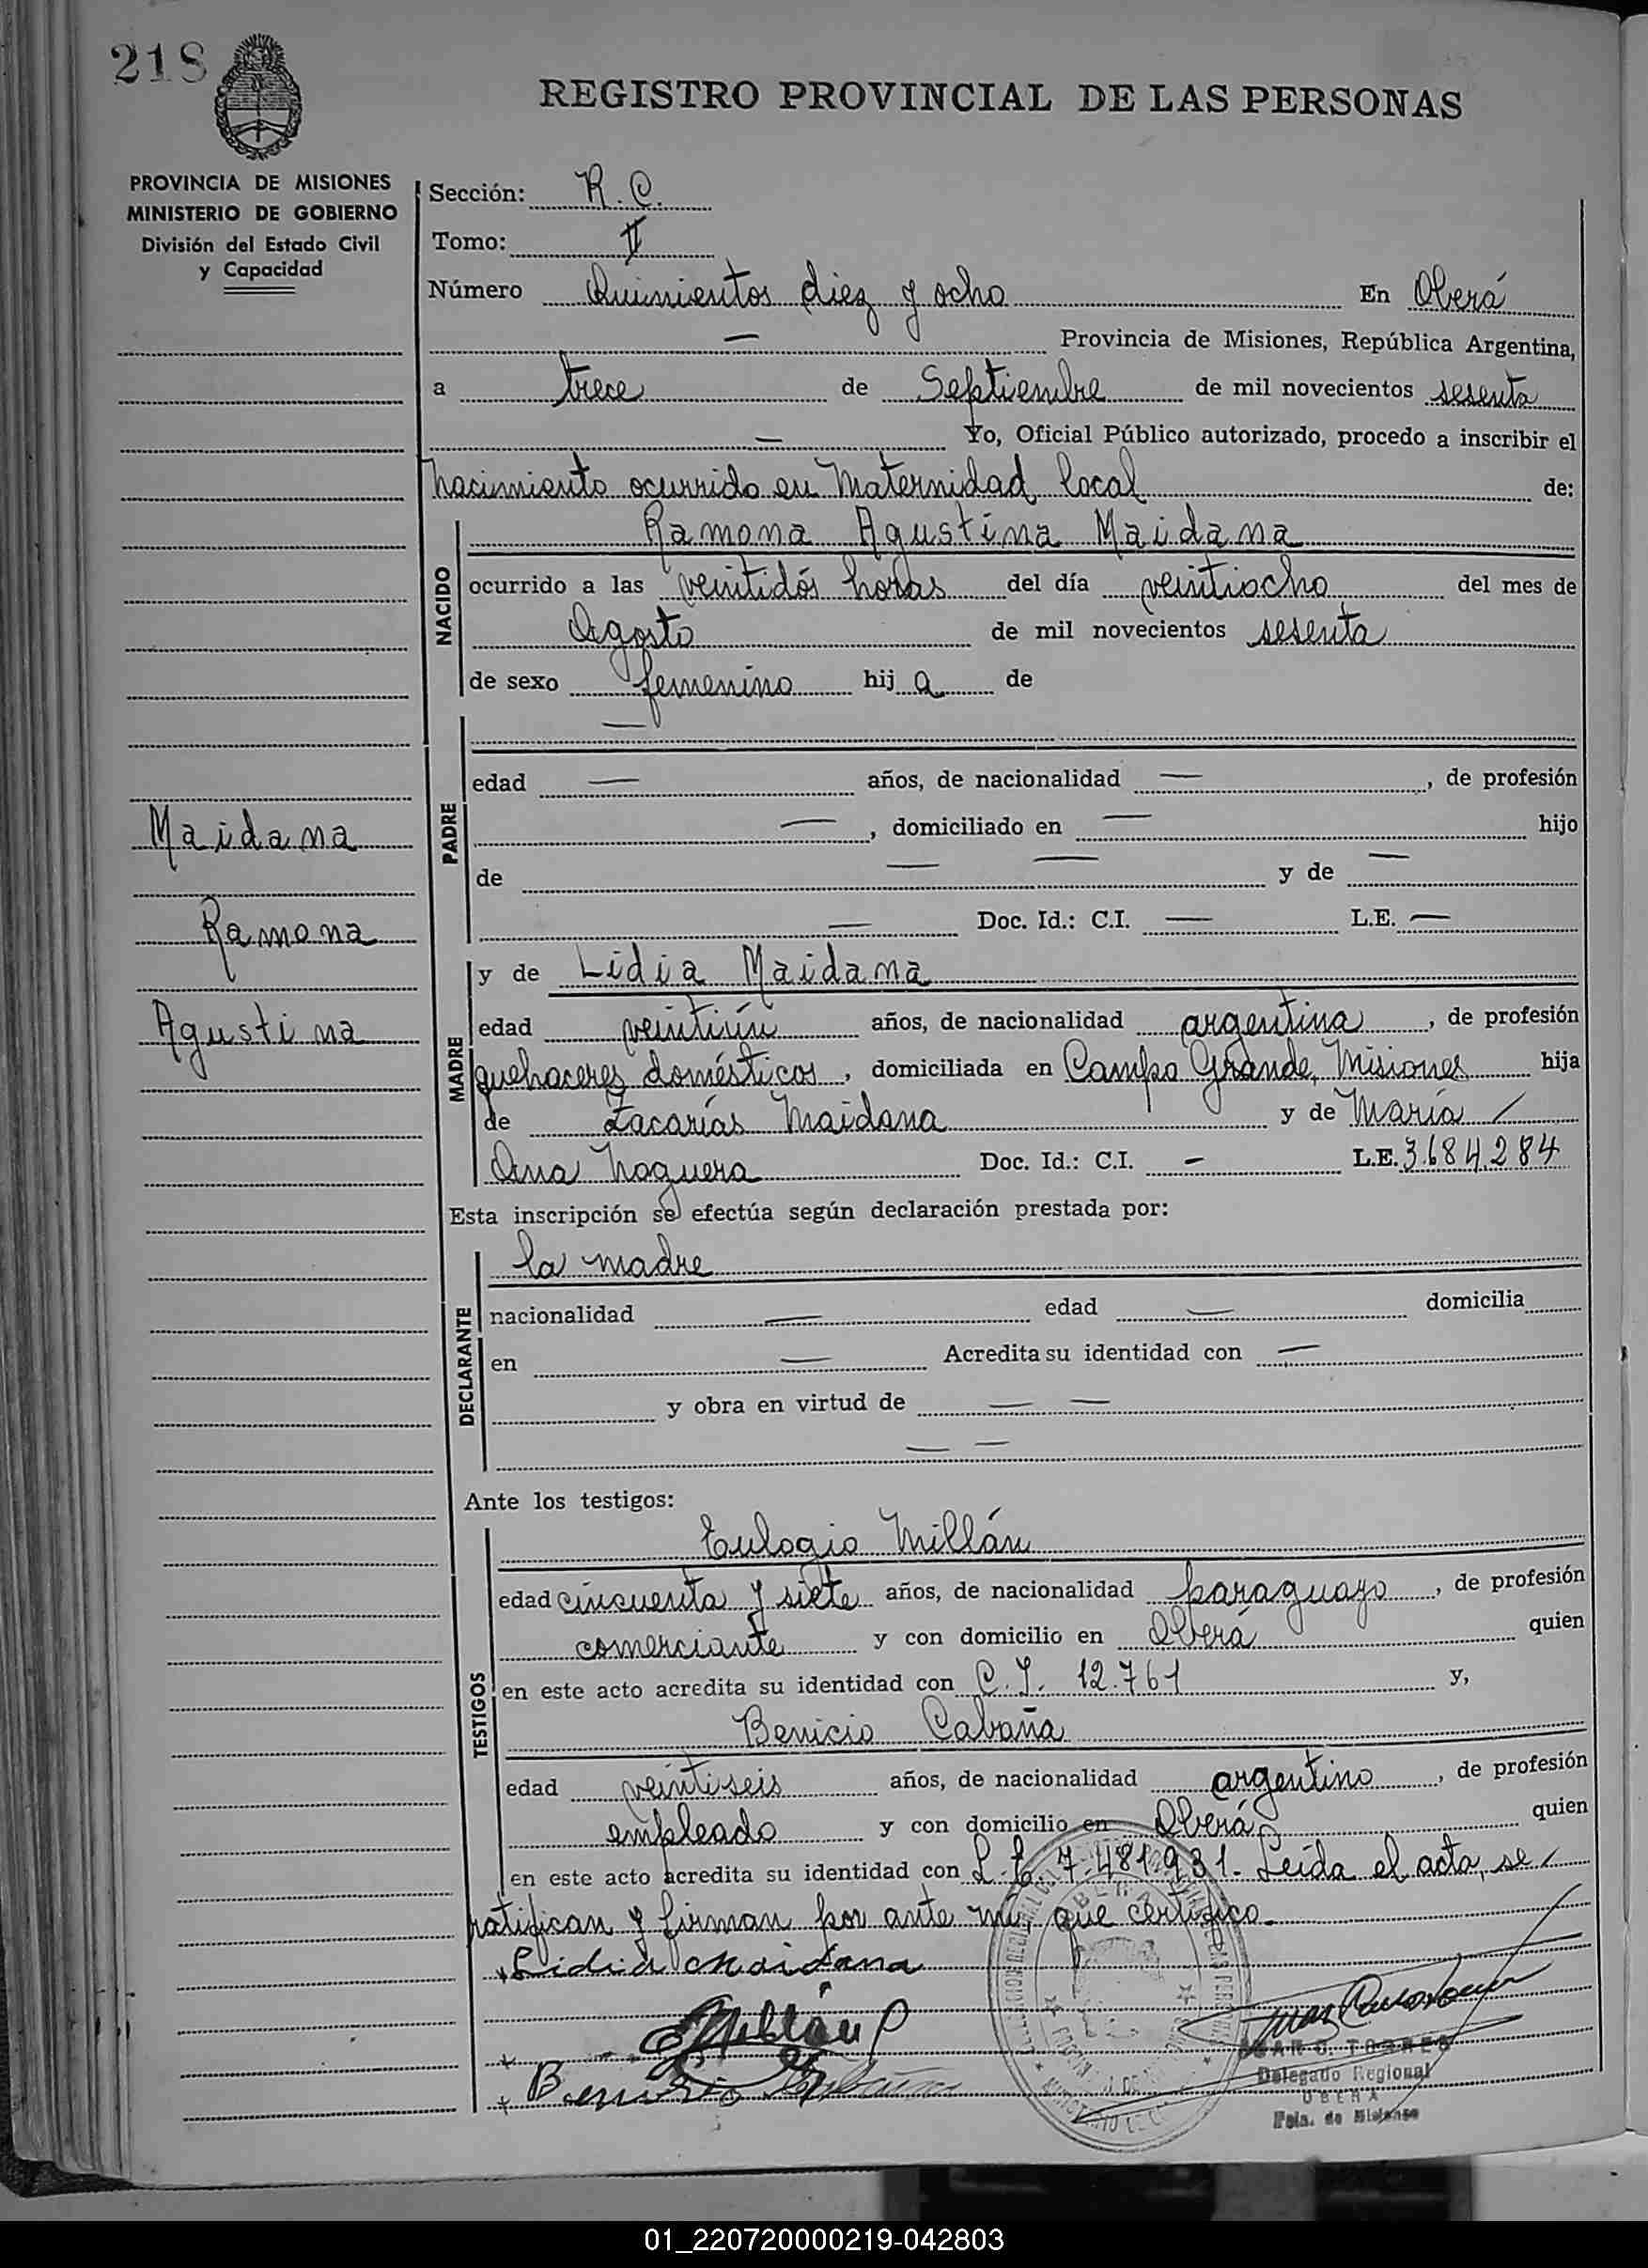 218
REGISTRO PROVINCIAL DE LAS PERSONAS
PROVINCIA DE MISIONES
MINISTERIO DE GOBIERNO
División del Estado Civil
y Capacidad
Sección: R.C.
Tomo: II
Número Quinientos diez y ocho En Oberá
— Provincia de Misiones, República Argentina,
a trece de Septiembre de mil novecientos sesenta
— Yo, Oficial Público autorizado, procedo a inscribir el
nacimiento ocurrido en Maternidad local de:
NACIDO
Ramona Agustina Maidana
ocurrido a las veintidós horas del día veintiocho del mes de
Agosto de mil novecientos sesenta
de sexo femenino hija de
PADRE
—
edad — años, de nacionalidad —, de profesión
—, domiciliado en — hijo
de — — y de —
— Doc. Id.: C.I. — L.E. —
Maidana
Ramona
Agustina
MADRE
y de Lidia Maidana
edad veintiún años, de nacionalidad argentina, de profesión
quehaceres domésticos, domiciliada en Campo Grande, Misiones hija
de Zacarías Maidana y de María /
Ana Noguera Doc. Id.: C.I. — L.E. 3.684.284
Esta inscripción se efectúa según declaración prestada por:
DECLARANTE
la madre
nacionalidad — edad — domicilia
en — Acredita su identidad con —
y obra en virtud de — —
— —
Ante los testigos:
TESTIGOS
Eulogio Millán
edad cincuenta y siete años, de nacionalidad paraguayo, de profesión
comerciante y con domicilio en Oberá quien
en este acto acredita su identidad con C.I. 12.761 y,
Benicio Cabaña
edad veintiseis años, de nacionalidad argentino, de profesión
empleado y con domicilio en Oberá quien
en este acto acredita su identidad con L.E. 7.481.931.- Leída el acta, se /
ratifican y firman por ante mí, que certifico.-
Lidia Maidana
EMillán
Benicio Cabaña
TORRES
Delegado Regional
OBERA
Pcia. de Misiones
01_220720000219-042803